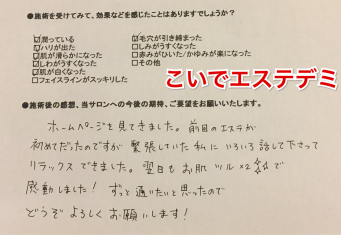 ●施術を受けてみて、効果などを感じたことはありますでしょうか?
☑潤っている
☑毛穴が引き締まった
☑ハリが出た
□しみがうすくなった
☑肌が滑らかになった
□赤みがひいた/かゆみが楽になった
☑しわがうすくなった
□その他
☑肌が白くなった
□フェイスラインがスッキリした
こいでエステデミ
●施術後の感想、当サロンへの今後の期待、ご要望をお願いいたします。
ホームページを見てきました。前回のエステが
初めてだったのですが緊張していた私にいろいろ話して下さって
リラックスできました。翌日もお肌ツル×2☆☆で
感動しました! ずっと通いたいと思ったので
どうぞよろしくお願いします!